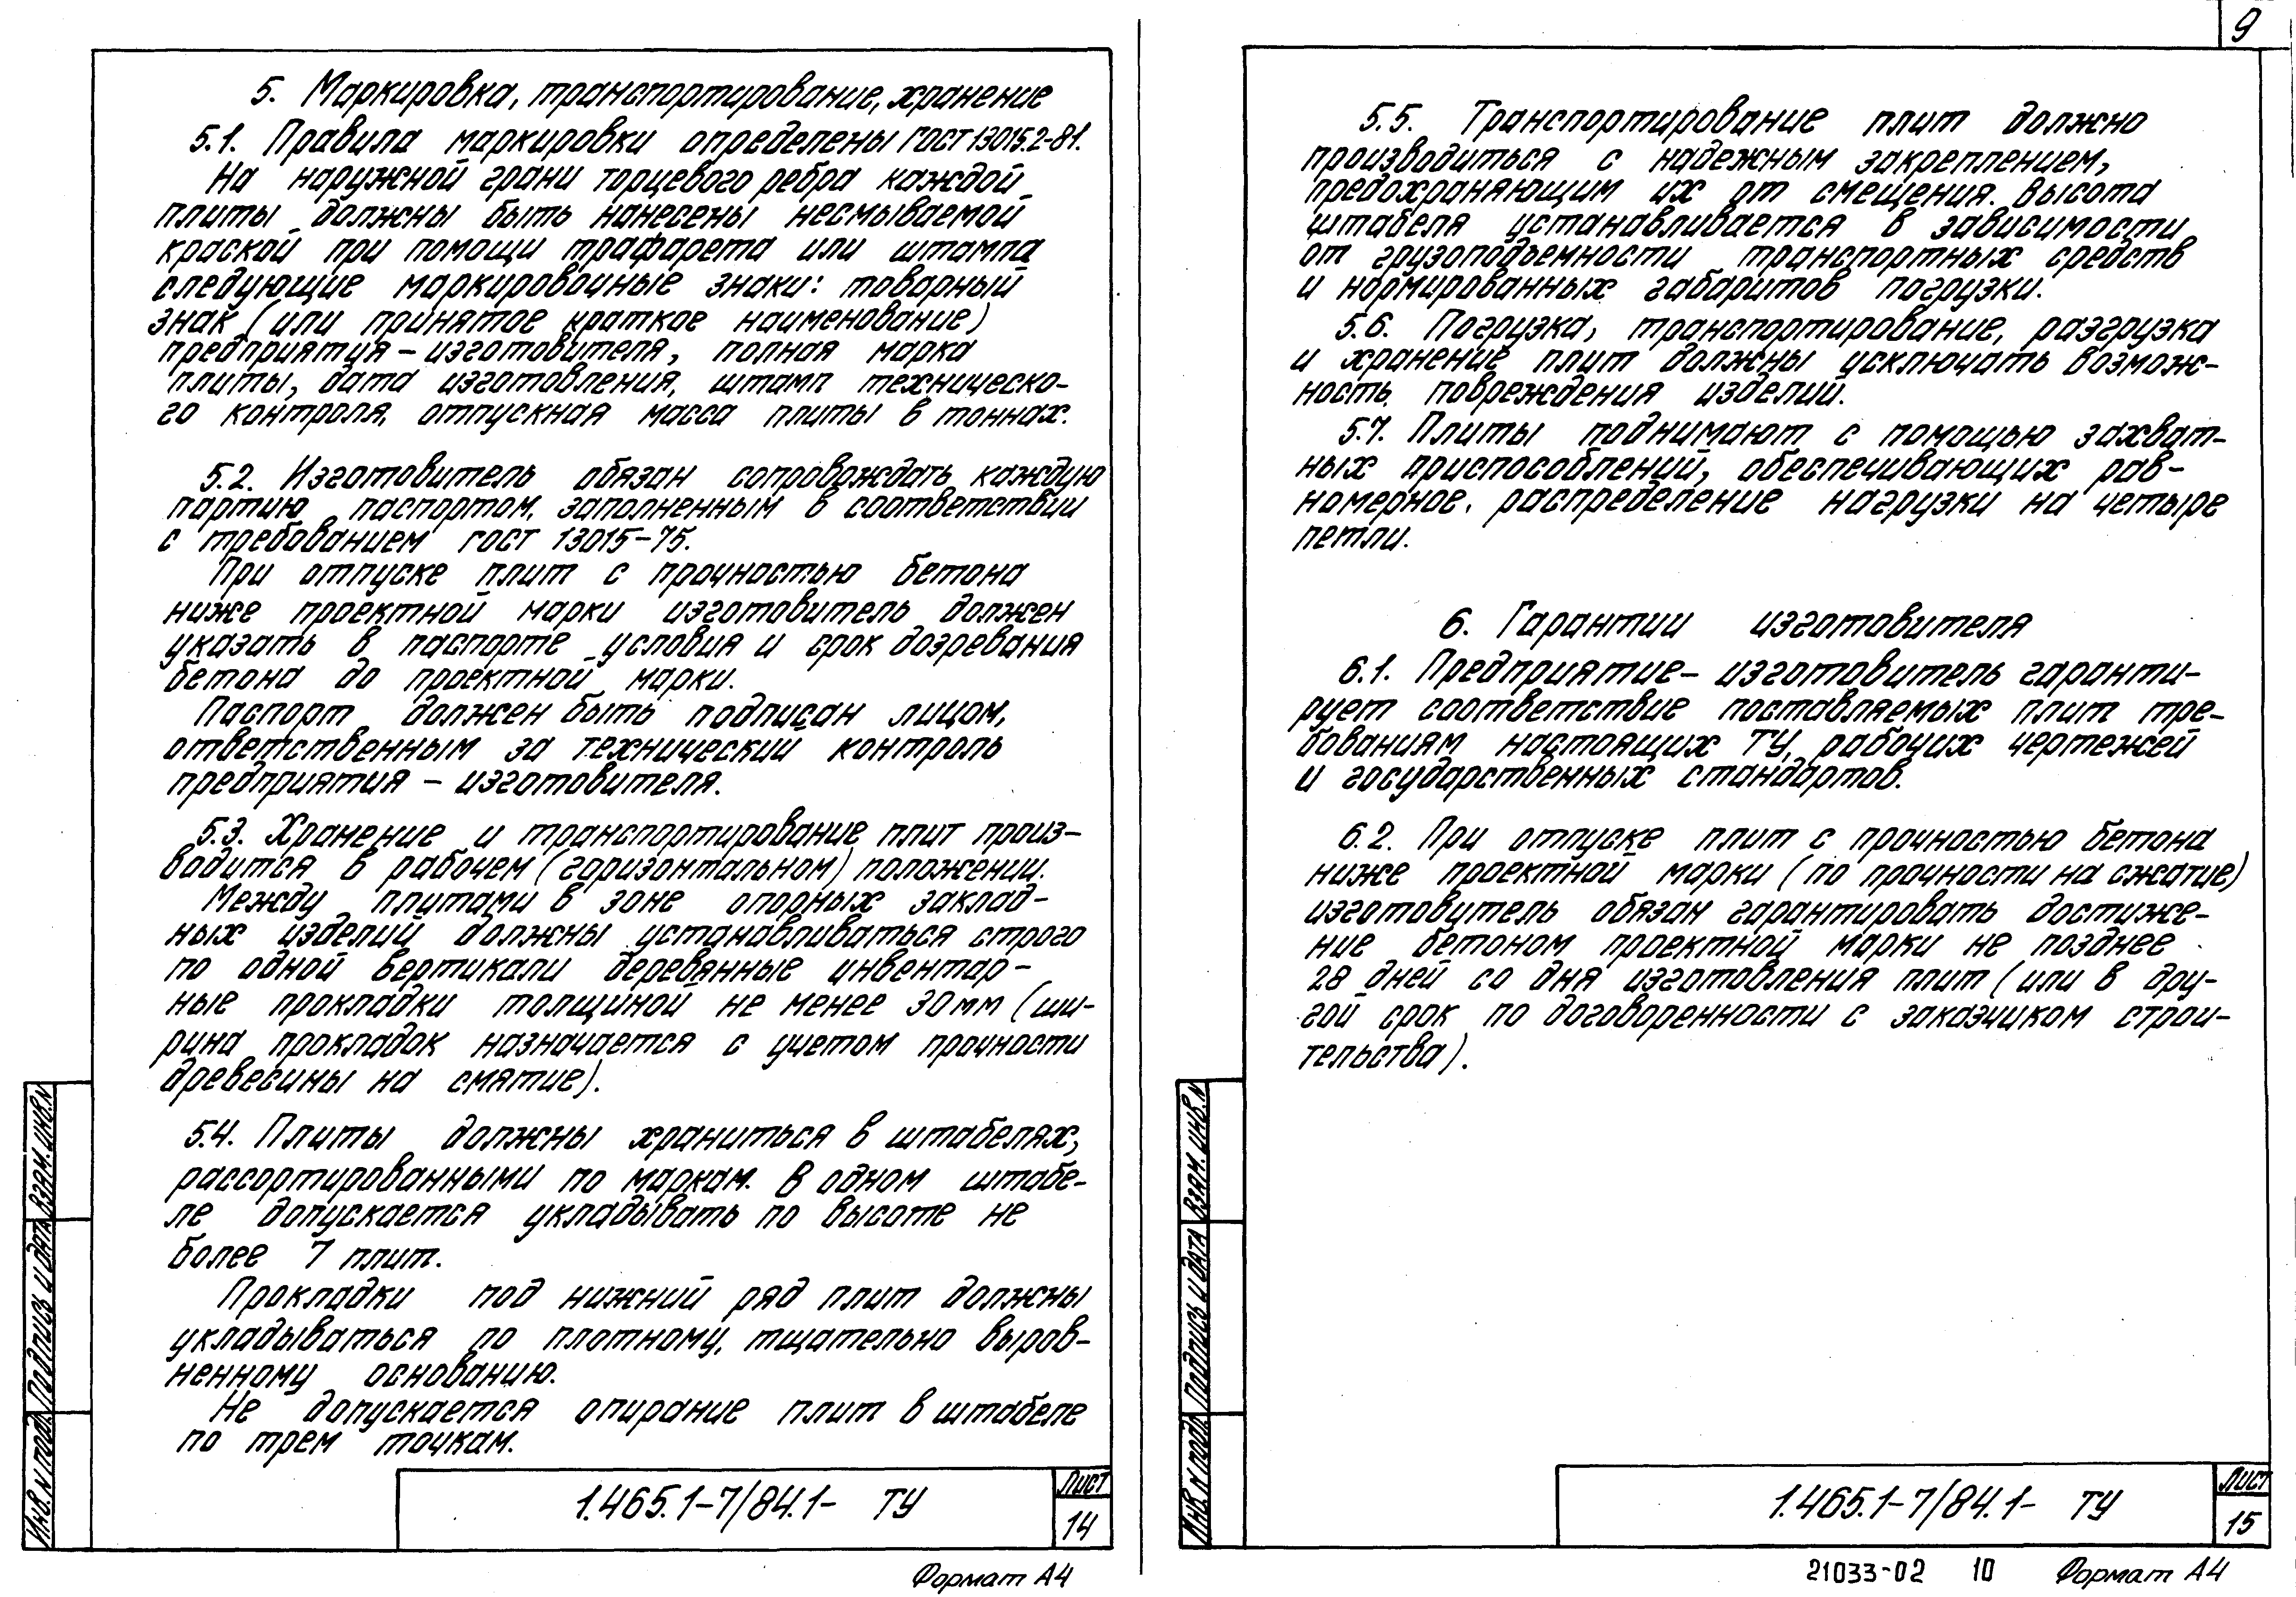 5. Маркировка, транспортирование, хранение
5.1. Правила маркировки определены ГОСТ 13015.2-81.
На наружной грани торцевого ребра каждой
плиты должны быть нанесены несмываемой
краской при помощи трафарета или штампа
следующие маркировочные знаки: товарный
знак (или принятое краткое наименование)
предприятия - изготовителя, полная марка
плиты, дата изготовления, штамп техническо-
го контроля, отпускная масса плиты в тоннах.
5.2. Изготовитель обязан сопровождать каждую
партию паспортом, заполненным в соответствии
с требованием ГОСТ 13015-75.
При отпуске плит с прочностью бетона
ниже проектной марки изготовитель должен
указать в паспорте условия и срок дозревания
бетона до проектной марки.
Паспорт должен быть подписан лицом,
ответственным за технический контроль
предприятия - изготовителя.
5.3. Хранение и транспортирование плит произ-
водится в рабочем (горизонтальном) положении.
Между плитами в зоне опорных заклад-
ных изделий должны устанавливаться строго
по одной вертикали деревянные инвентар-
ные прокладки толщиной не менее 30 мм (ши-
рина прокладок назначается с учетом прочности
древесины на смятие).
5.4. Плиты должны храниться в штабелях,
рассортированными по маркам. В одном штабе-
ле допускается укладывать по высоте не
более 7 плит.
Прокладки под нижний ряд плит должны
укладываться по плотному, тщательно выров-
ненному основанию.
Не допускается опирание плит в штабеле
по трем точкам.
Инв. N подл.
Подпись и дата
Взам. инв. N
1.465.1-7/84.1- ТУ
Лист
14
Формат А4
9
5.5. Транспортирование плит должно
производиться с надежным закреплением,
предохраняющим их от смещения. Высота
штабеля устанавливается в зависимости
от грузоподъемности транспортных средств
и нормированных габаритов погрузки.
5.6. Погрузка, транспортирование, разгрузка
и хранение плит должны исключать возмож-
ность повреждения изделий.
5.7. Плиты поднимают с помощью захват-
ных приспособлений, обеспечивающих рав-
номерное распределение нагрузки на четыре
петли.
6. Гарантии изготовителя
6.1. Предприятие- изготовитель гаранти-
рует соответствие поставляемых плит тре-
бованиям настоящих ТУ, рабочих чертежей
и государственных стандартов.
6.2. При отпуске плит с прочностью бетона
ниже проектной марки (по прочности на сжатие)
изготовитель обязан гарантировать достиже-
ние бетоном проектной марки не позднее
28 дней со дня изготовления плит (или в дру-
гой срок по договоренности с заказчиком строи-
тельства).
Инв. N подл.
Подпись и дата
Взам. инв. N
1.465.1-7/84.1- ТУ
Лист
15
21033-02 10 Формат А4